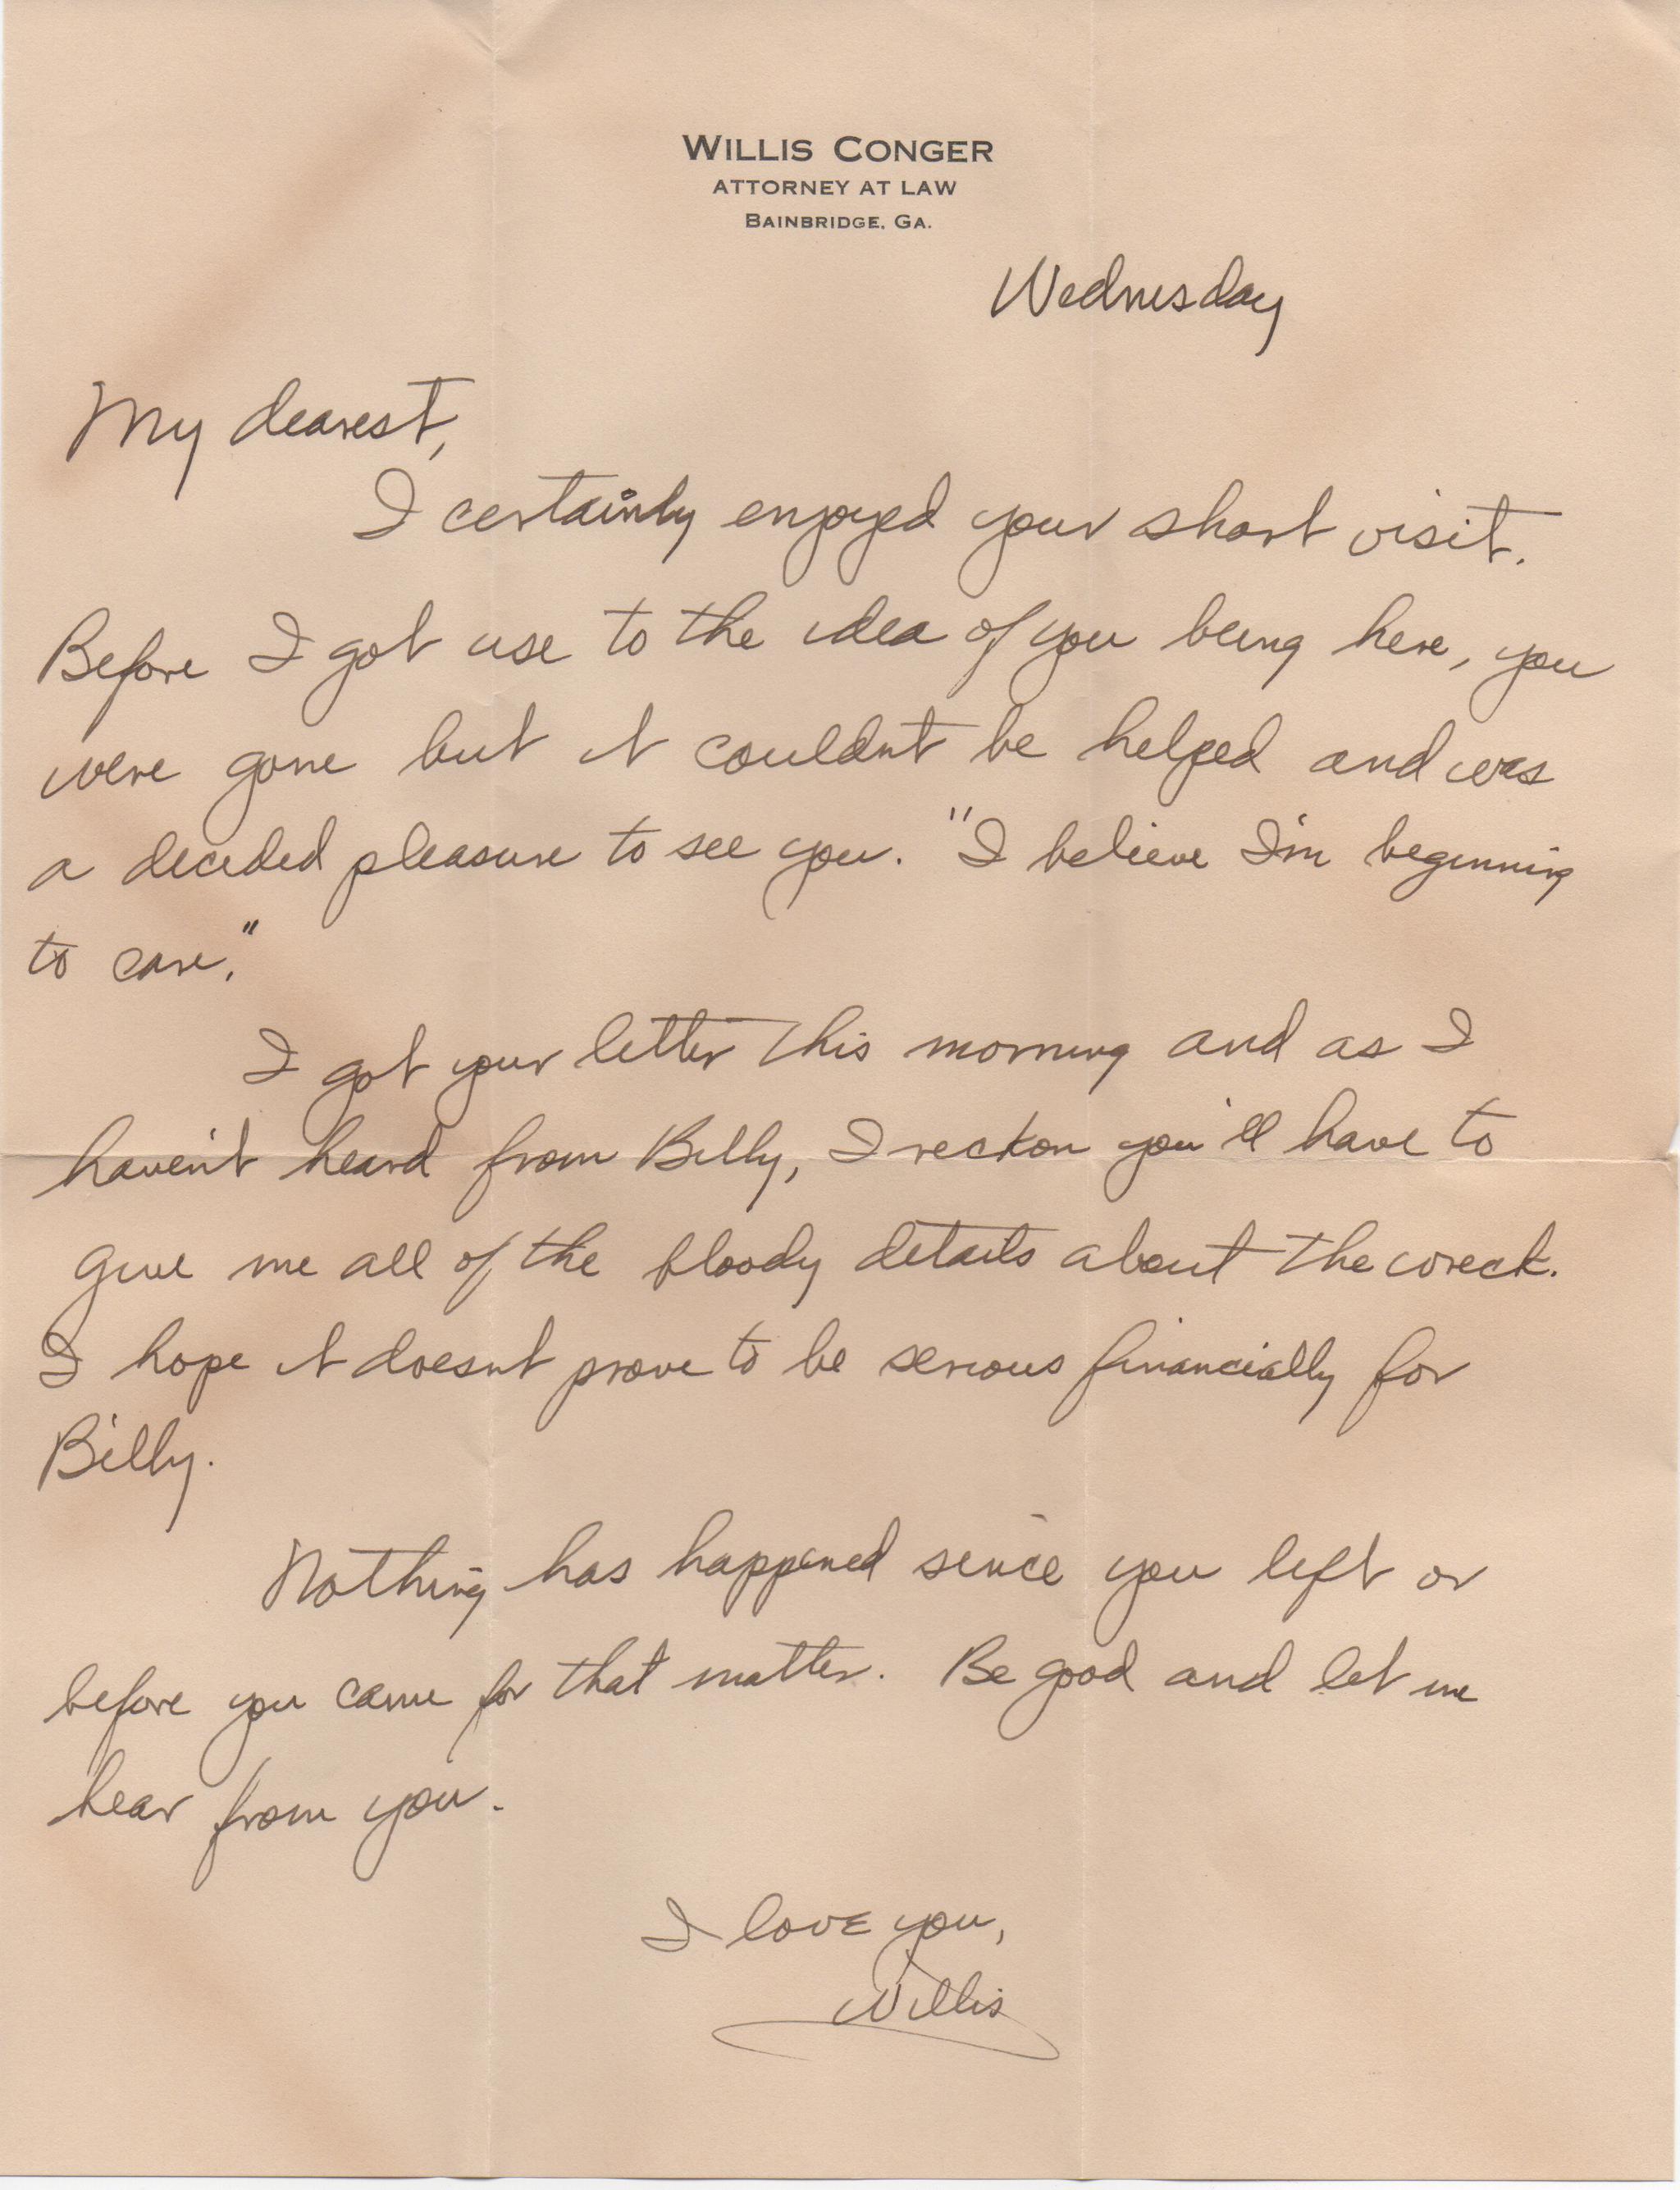 WILLIS CONGER
ATTORNEY AT LAW
BAINBRIDGE, GA.
Wednesday
My dearest,
I certainly enjoyed your short visit.
Before I got use to the idea of you being here, you
were gone but it couldnt be helped and was
a decided pleasure to see you. "I believe I'm beginning
to care."
I got your letter this morning and as I
haven't heard from Billy, I reckon you'll have to
give me all of the bloody details about the wreck.
I hope it doesnt prove to be serious financially for
Billy.
Nothing has happened since you left or
before you came for that matter. Be good and let me
hear from you.
I love you,
Willis